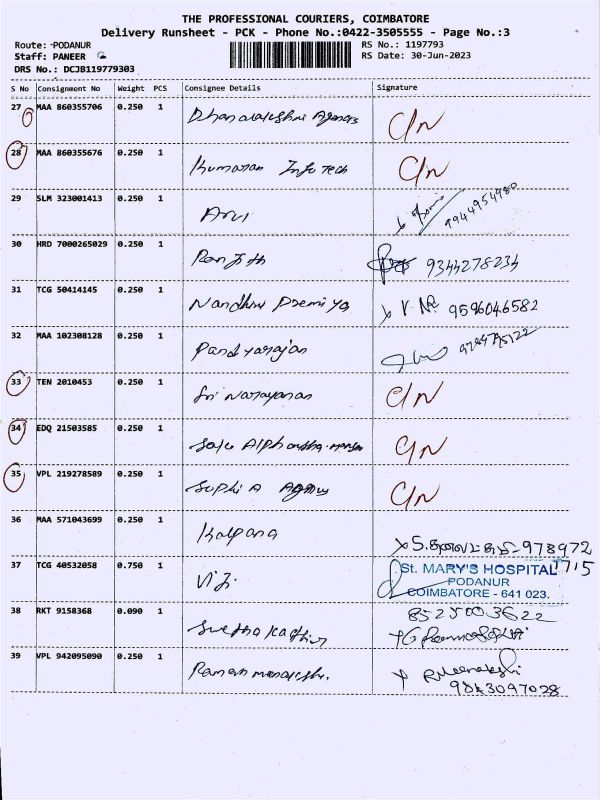 THE PROFESSIONAL COURIERS, COIMBATORE
Delivery Runsheet - PCK - Phone No.:0422-3505555 - Page No.:3
Route: PODANUR
RS No.: 1197793
Staff: PANEER
RS Date: 30-Jun-2023
DRS No.: DCJB119779303
S No Consignment No Weight PCS Consignee Details Signature
27 MAA 860355706 0.250 1 C/N
28 MAA 860355676 0.250 1 Kumaran Info Tech C/N
29 SLM 323001413 0.250 1 9944954980
30 HRD 7000265029 0.250 1 Ranjith 9344278234
31 TCG 50414145 0.250 1 Nandhini Premiya 9596046582
32 MAA 102308128 0.250 1 Pandyarajan
33 TEN 2010453 0.250 1 Sri Narayanan C/N
34 EDQ 21503585 0.250 1 C/N
35 VPL 219278589 0.250 1 C/N
36 MAA 571043699 0.250 1 Kalpana 978972
1715
37 TCG 40532058 0.750 1 Viji St. MARY'S HOSPITAL
PODANUR
COIMBATORE - 641 023.
38 RKT 9158368 0.090 1 8525003622
39 VPL 942095090 0.250 1 R. Meenakshi
9843097028